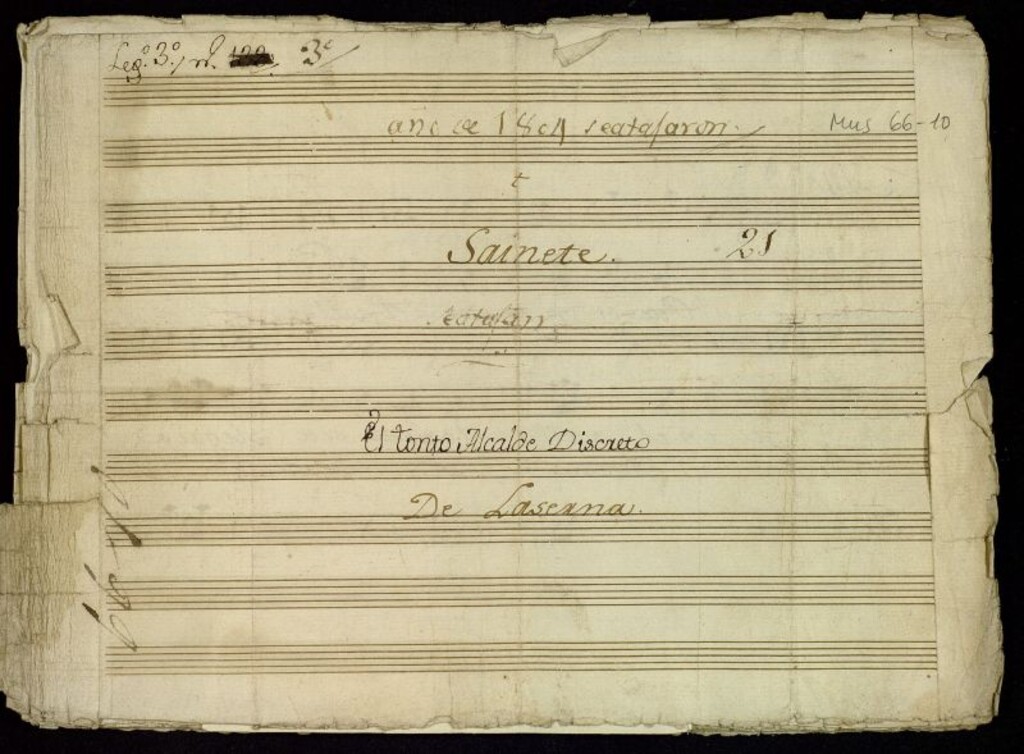 Leg.º 3.º, n.º 3º
año de 1804 se atasaron.
Mus 66-10
t
Sainete. 21
se atasan
El tonto Alcalde Discreto
De Laserna.